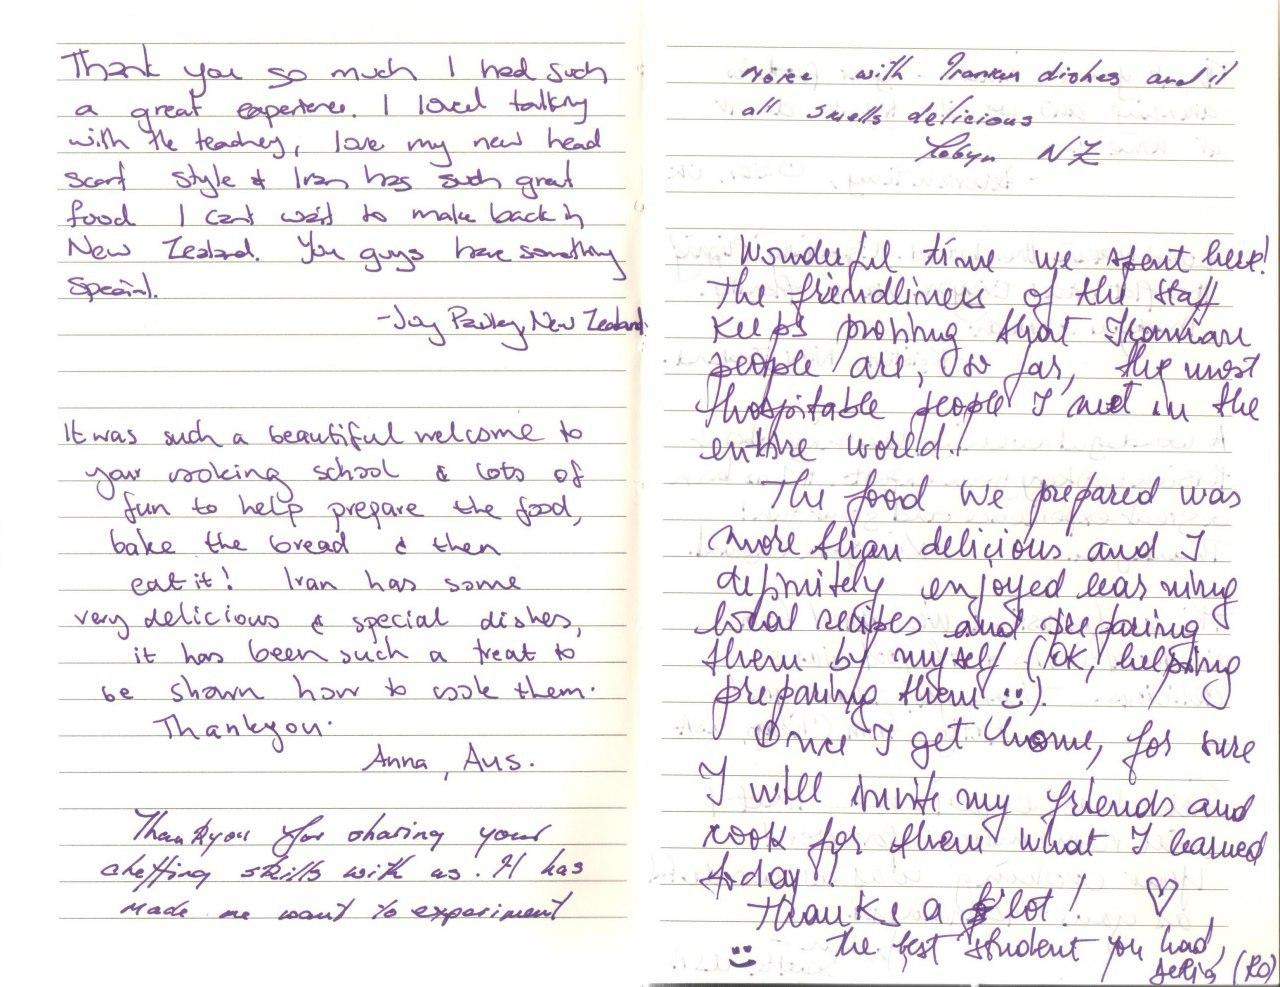 Thank you so much I had such
a great experience. I loved talking
with the teachey, love my new head
scarf style & Iran has such great
food I cant wait to make back in
New Zealand. You guys have something
special.
- Joy New Zealand
It was such a beautiful welcome to
your cooking school & lots of
fun to help prepare the food,
bake the bread & then
eat it! Iran has some
very delicious & special dishes,
it has been such a treat to
be shown how to cook them.
Thankyou.
Anna, Aus.
Thankyou for sharing your
cheffing skills with us. It has
made me want to experiment
more with Iranian dishes and it
all smells delicious
Robyn NZ
Wonderful time we spent here!
The friendliness of the staff
keeps proving that Iranian
people are, so far, the most
hospitable people I met in the
entire world!
The food we prepared was
more than delicious and I
definitely enjoyed learning
local recipes and preparing
them by myself (OK, helping
preparing them :)).
Once I get home, for sure
I will invite my friends and
cook for them what I learned
today!
Thanks a lot! ♡
:) the best student you had,
(RO)